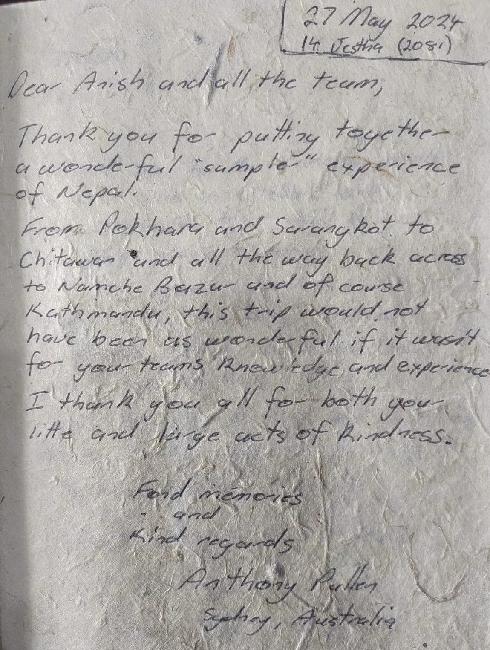 27 May 2024
14 Jestha (2081)
Dear Anish and all the team,
Thank you for putting together
a wonderful "sampler" experience
of Nepal.
From Pokhara and Sarangkot to
Chitawan and all the way back across
to Namche Bazar and of course
Kathmandu, this trip would not
have been as wonderful if it wasn't
for your teams knowledge and experience
I thank you all for both your
little and large acts of kindness.
Fond memories
and
Kind regards
Anthony Pullen
Sydney, Australia